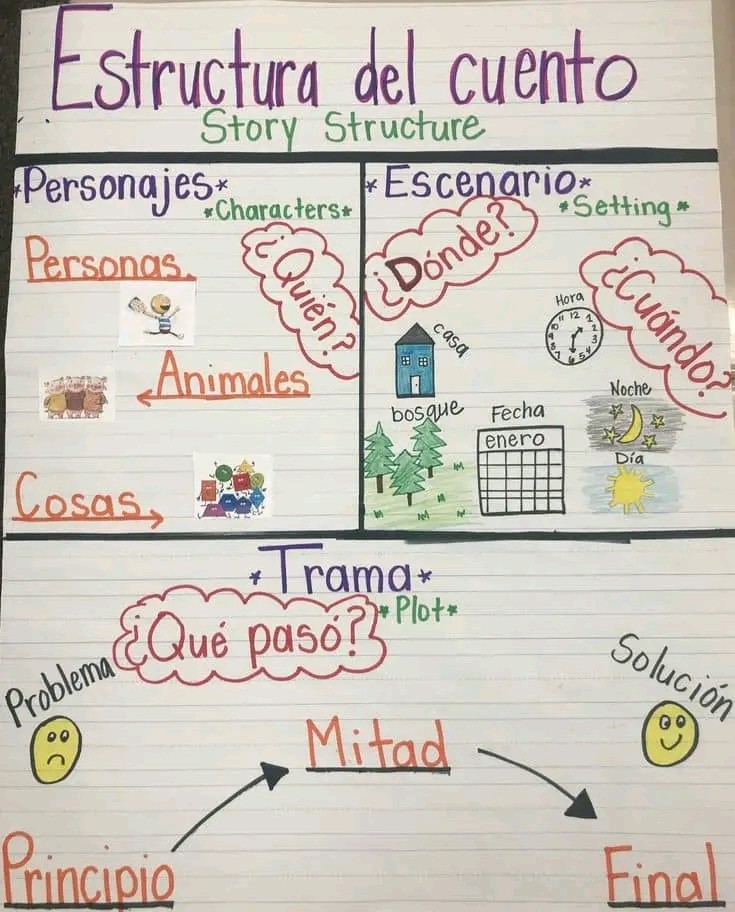 Estructura del cuento
Story Structure
*Personajes*
*Characters*
¿Quién?
Personas
Animales
Cosas
*Escenario*
*Setting*
¿Dónde?
¿Cuándo?
casa
Hora
12 1 2 3 4 5 6 7 8 9 10 11
bosque
Fecha
enero
Noche
Día
*Trama*
*Plot*
¿Qué pasó?
Problema
Solución
Mitad
Principio
Final